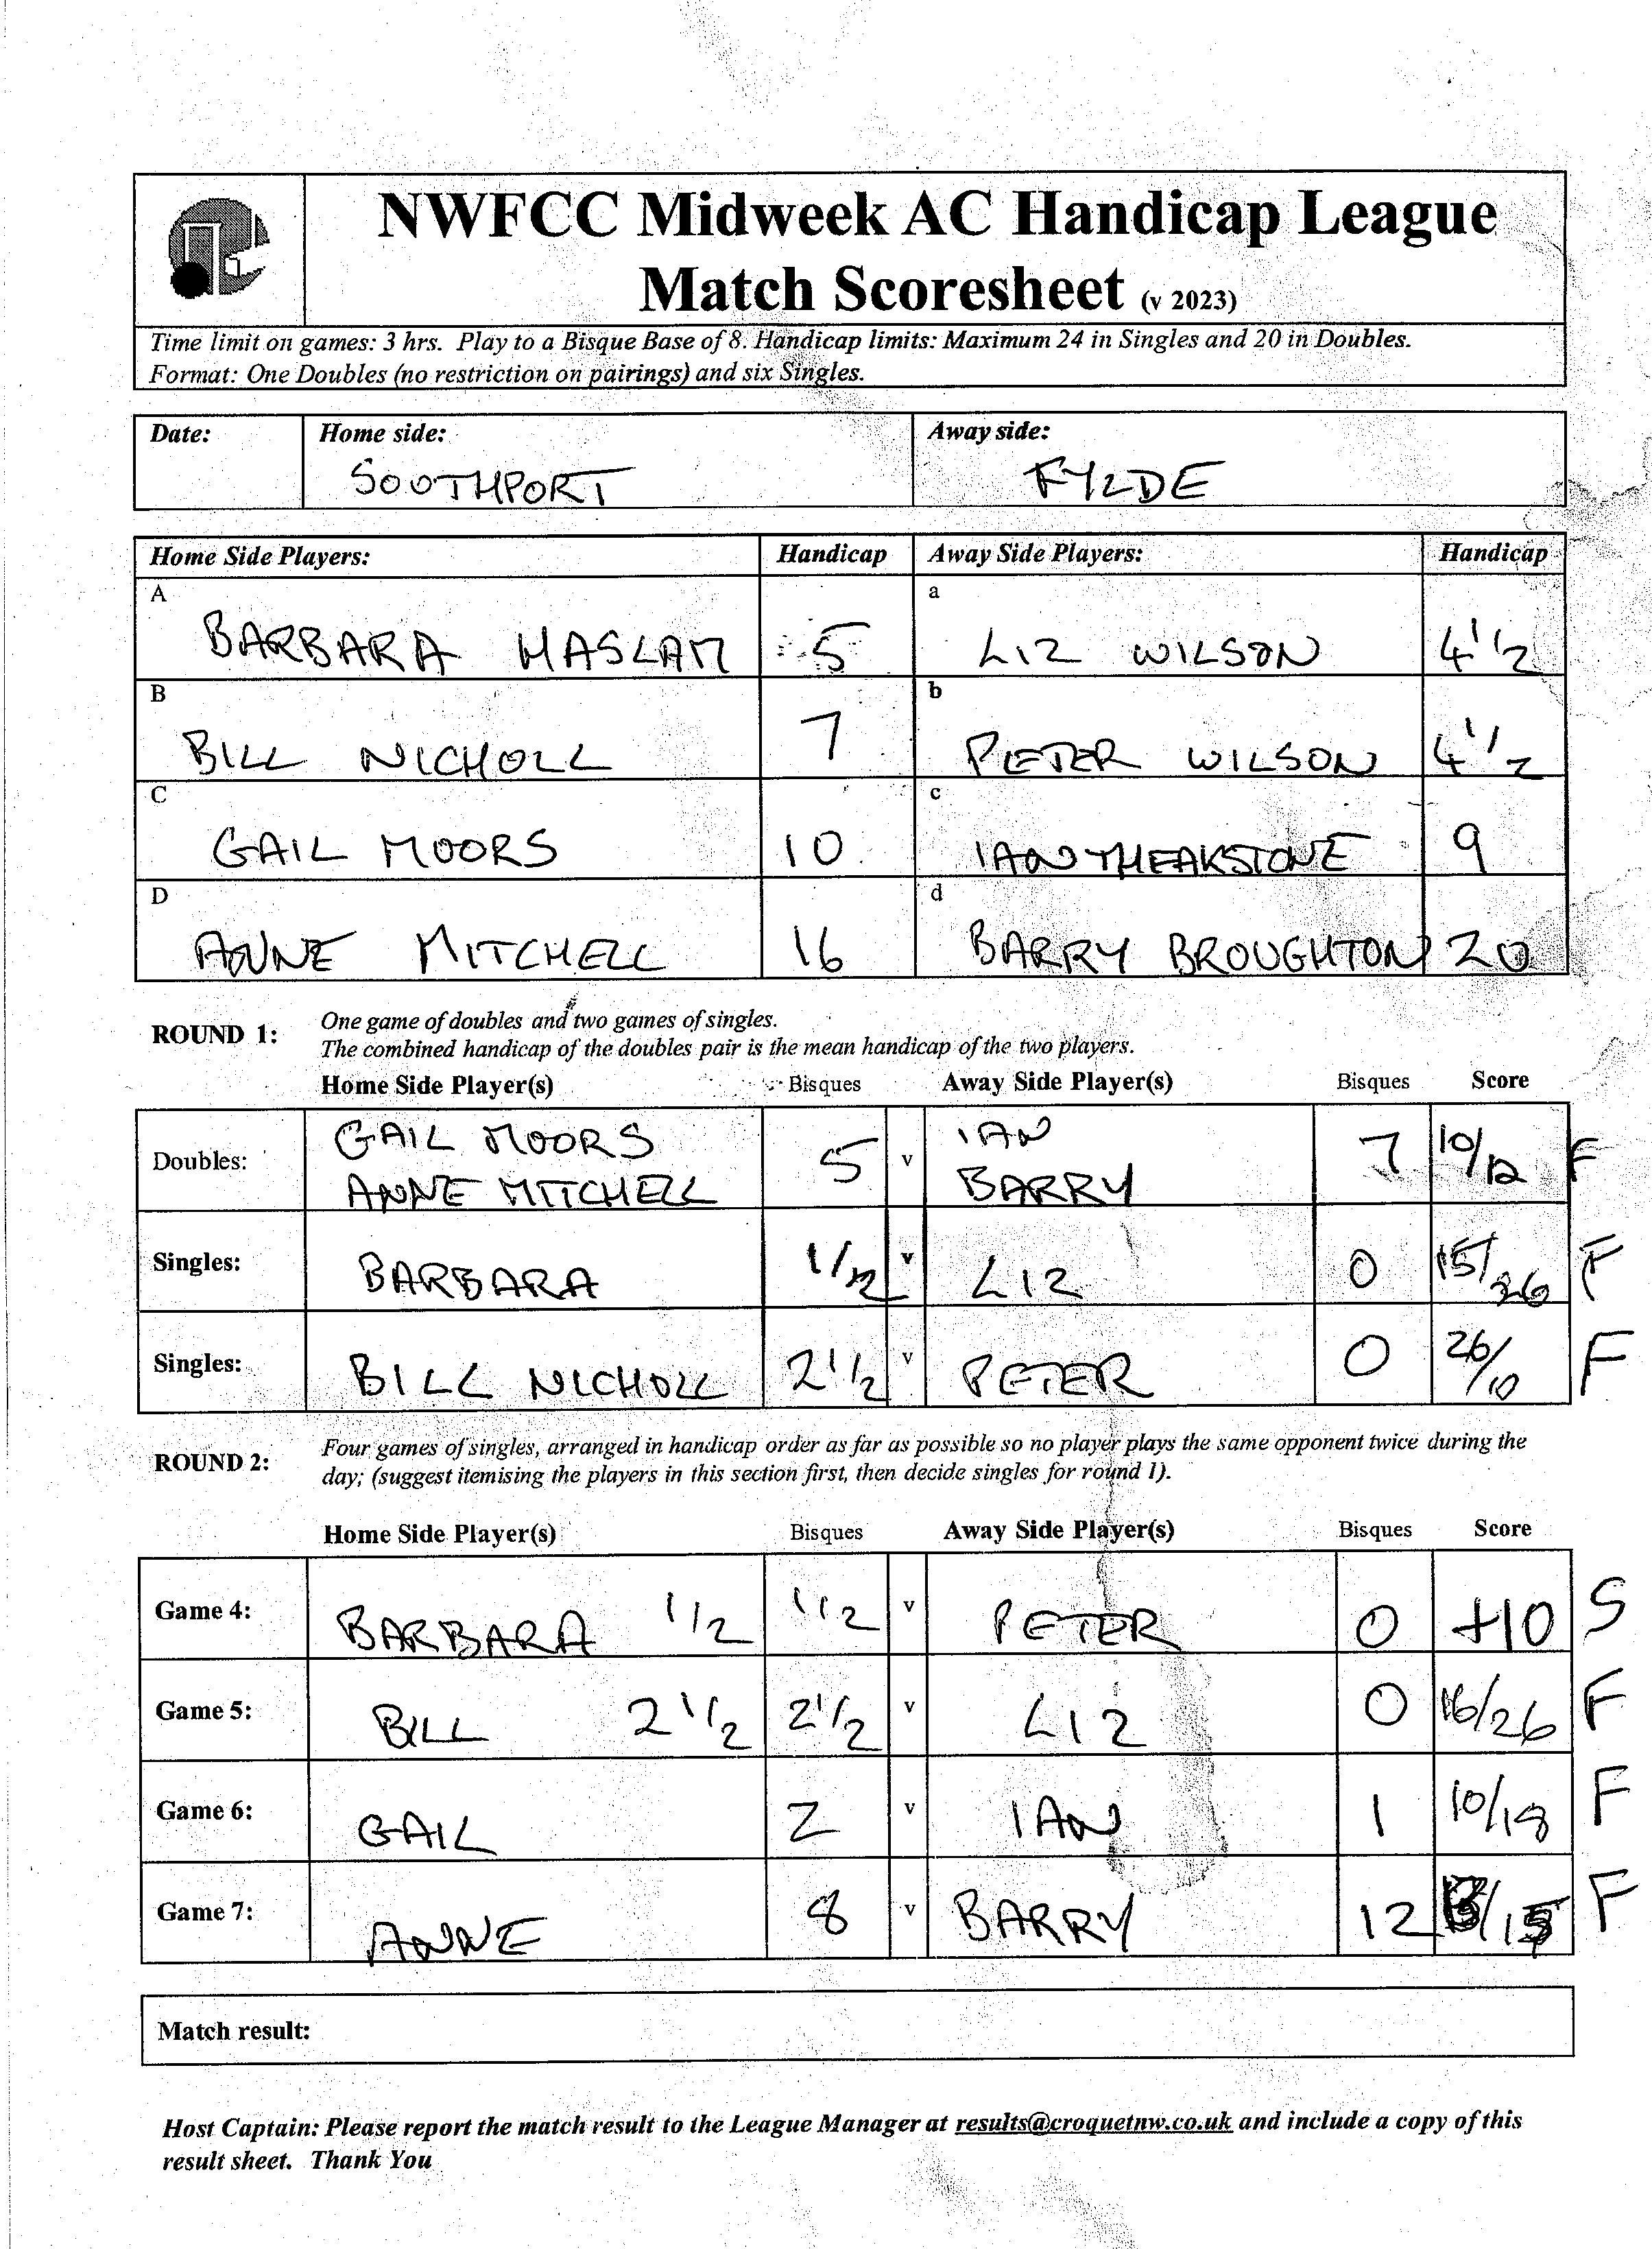 NWFCC Midweek AC Handicap League
Match Scoresheet (v 2023)
Time limit on games: 3 hrs. Play to a Bisque Base of 8. Handicap limits: Maximum 24 in Singles and 20 in Doubles.
Format: One Doubles (no restriction on pairings) and six Singles.
Date: Home side: Away side:
SOUTHPORT FYLDE
Home Side Players: Handicap Away Side Players: Handicap
A a
BARBARA HASLAM 5 LIZ WILSON 4 1/2
B b
BILL NICHOLL 7 PETER WILSON 4 1/2
C c
GAIL MOORS 10 IAN THEAKSTONE 9
D d
ANNE MITCHELL 16 BARRY BROUGHTON 20
ROUND 1: One game of doubles and two games of singles.
The combined handicap of the doubles pair is the mean handicap of the two players.
Home Side Player(s) Bisques Away Side Player(s) Bisques Score
Doubles: GAIL MOORS 5 v IAN 7 10/12 F
ANNE MITCHELL BARRY
Singles: BARBARA 1/2 v LIZ 0 15/26 F
Singles: BILL NICHOLL 2 1/2 v PETER 0 26/10 F
ROUND 2: Four games of singles, arranged in handicap order as far as possible so no player plays the same opponent twice during the
day; (suggest itemising the players in this section first, then decide singles for round 1).
Home Side Player(s) Bisques Away Side Player(s) Bisques Score
Game 4: BARBARA 1/2 1/2 v PETER 0 +10 S
Game 5: BILL 2 1/2 2 1/2 v LIZ 0 16/26 F
Game 6: GAIL 2 v IAN 1 F
Game 7: ANNE 8 v BARRY 12 F
Match result:
Host Captain: Please report the match result to the League Manager at results@croquetnw.co.uk and include a copy of this
result sheet. Thank You